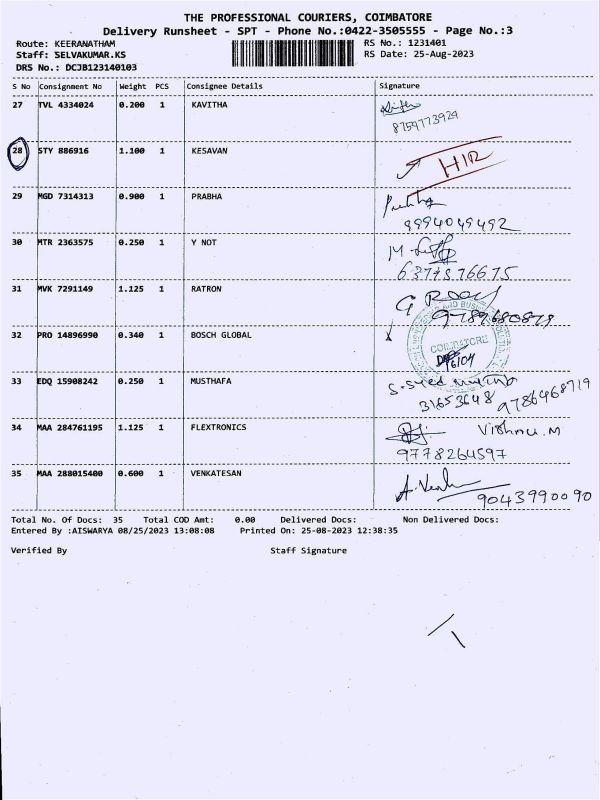 THE PROFESSIONAL COURIERS, COIMBATORE
Delivery Runsheet - SPT - Phone No.:0422-3505555 - Page No.:3
Route: KEERANATHAM RS No.: 1231401
Staff: SELVAKUMAR.KS RS Date: 25-Aug-2023
DRS No.: DCJB123140103
S No Consignment No Weight PCS Consignee Details Signature
27 TVL 4334024 0.200 1 KAVITHA
8759773929
28 STY 886916 1.100 1 KESAVAN HIR
29 MGD 7314313 0.900 1 PRABHA
9994049492
30 MTR 2363575 0.250 1 Y NOT
6374876675
31 MVK 7291149 1.125 1 RATRON
9789680879
32 PRO 14896990 0.340 1 BOSCH GLOBAL COIMBATORE
33 EDQ 15908242 0.250 1 MUSTHAFA
31653648 9786468719
34 MAA 284761195 1.125 1 FLEXTRONICS Vishnu.M
9778264597
35 MAA 288015400 0.600 1 VENKATESAN
9043990090
Total No. Of Docs: 35 Total COD Amt: 0.00 Delivered Docs: Non Delivered Docs:
Entered By :AISWARYA 08/25/2023 13:08:08 Printed On: 25-08-2023 12:38:35
Verified By Staff Signature